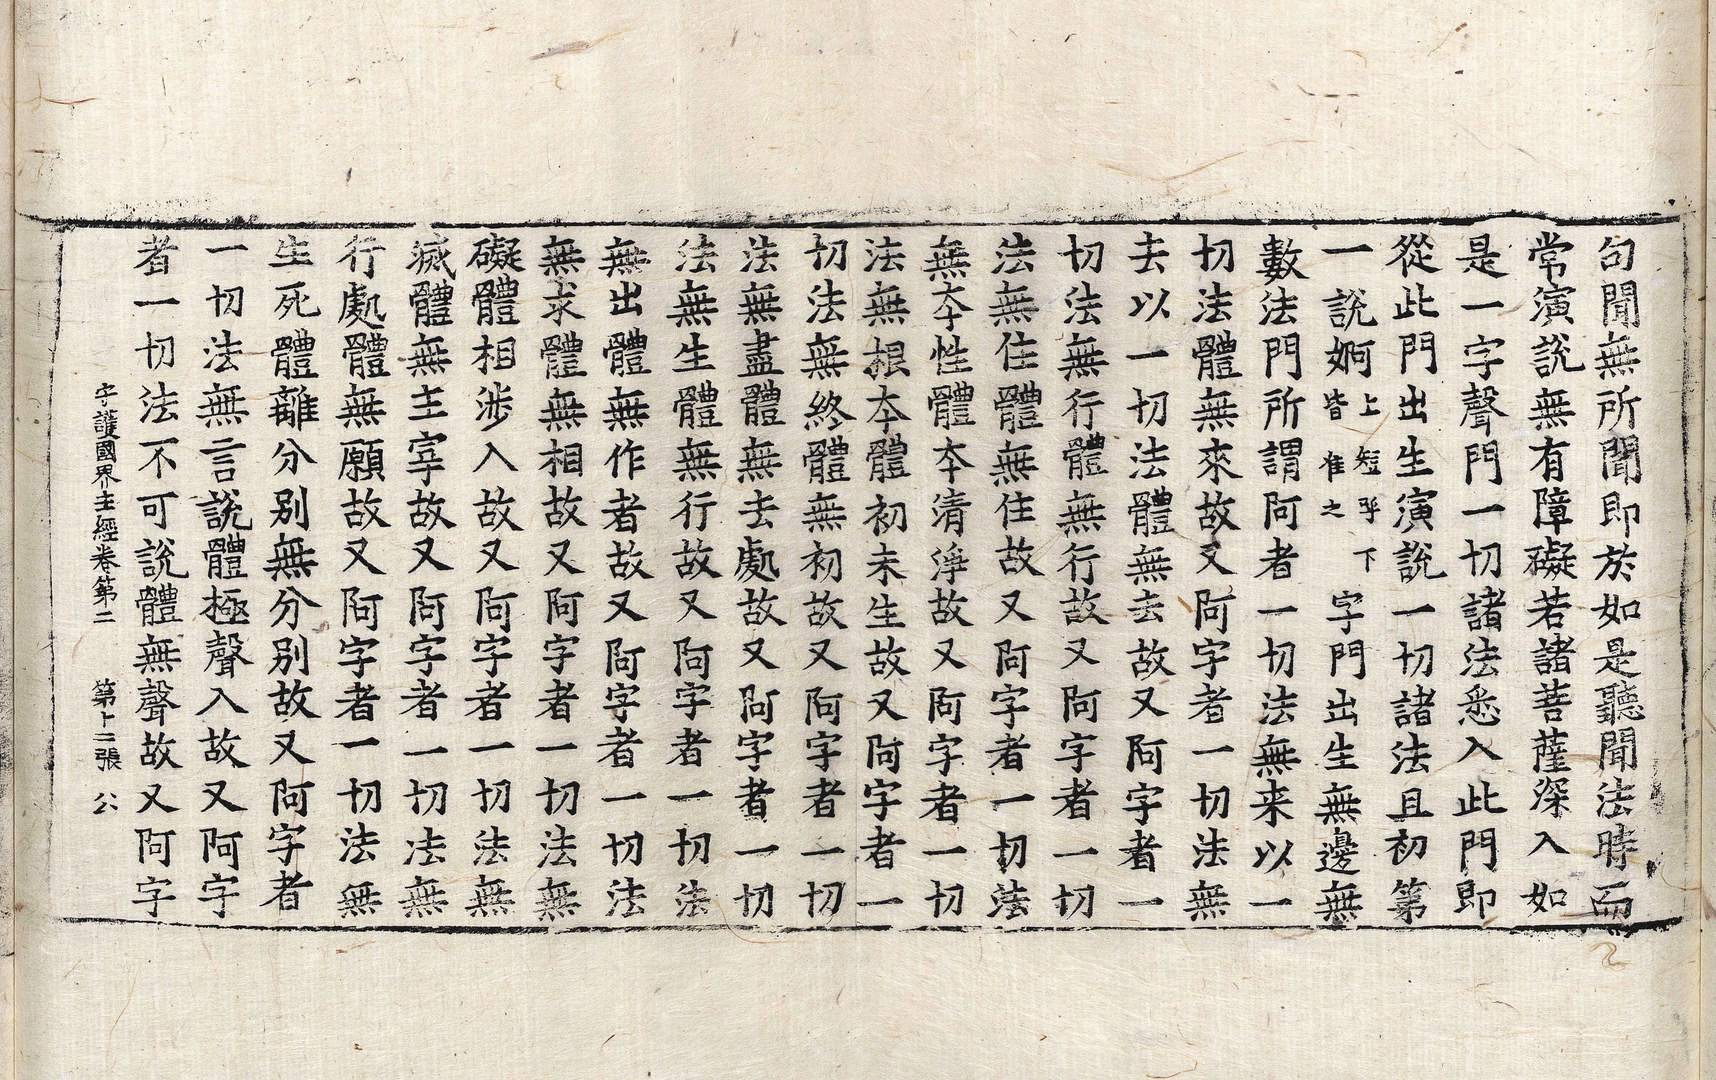 句聞無所聞即於如是聽聞法時而
常演說無有障礙若諸菩薩深入如
是一字聲門一切諸法悉入此門即
從此門出生演說一切諸法且初第
一說婀上短呼下皆准之字門出生無邊無
數法門所謂阿者一切法無来以一
切法體無來故又阿字者一切法無
去以一切法體無去故又阿字者一
切法無行體無行故又阿字者一切
法無住體無住故又阿字者一切法
無本性體本清淨故又阿字者一切
法無根本體初未生故又阿字者一
切法無終體無初故又阿字者一切
法無盡體無去處故又阿字者一切
法無生體無行故又阿字者一切法
無出體無作者故又阿字者一切法
無求體無相故又阿字者一切法無
礙體相涉入故又阿字者一切法無
滅體無主宰故又阿字者一切法無
行處體無願故又阿字者一切法無
生死體離分別無分別故又阿字者
一切法無言說體極聲入故又阿字
者一切法不可說體無聲故又阿字
守護國界主經卷第二　第十二張　公